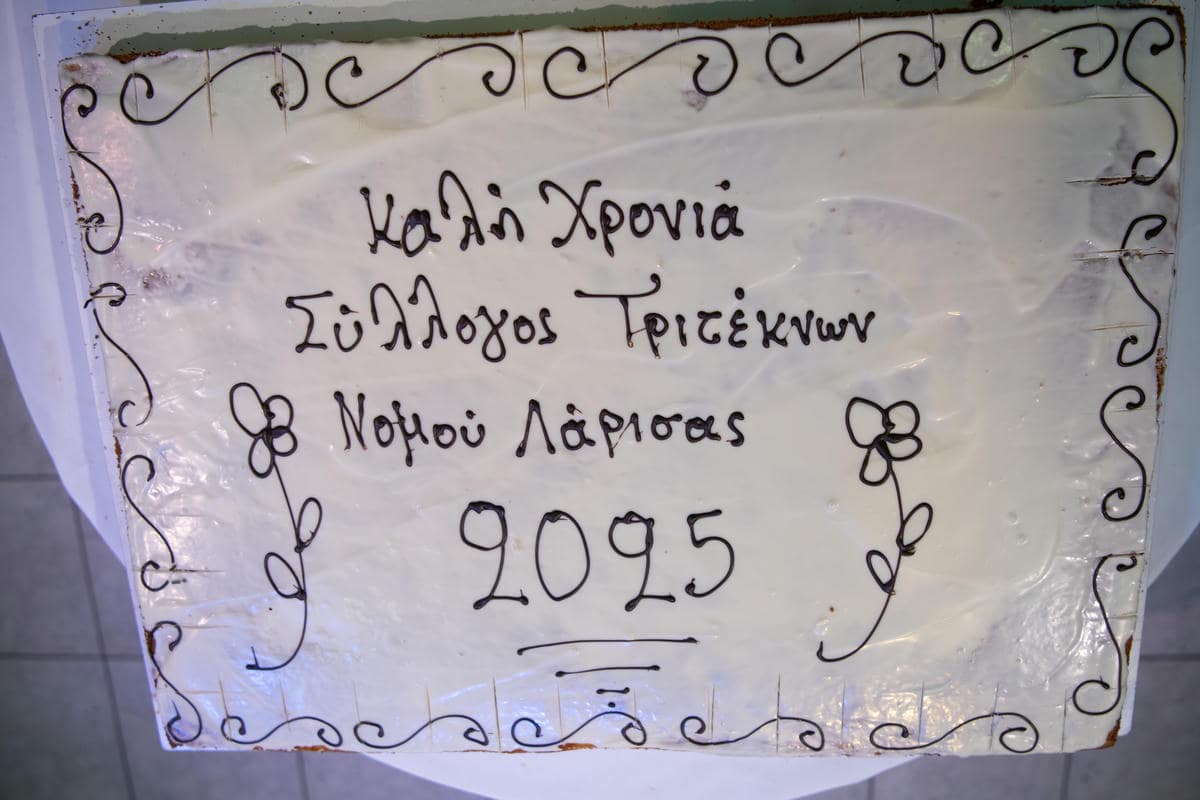 Καλή Χρονιά
Σύλλογος Τριτέκνων
Νομού Λάρισας
2025